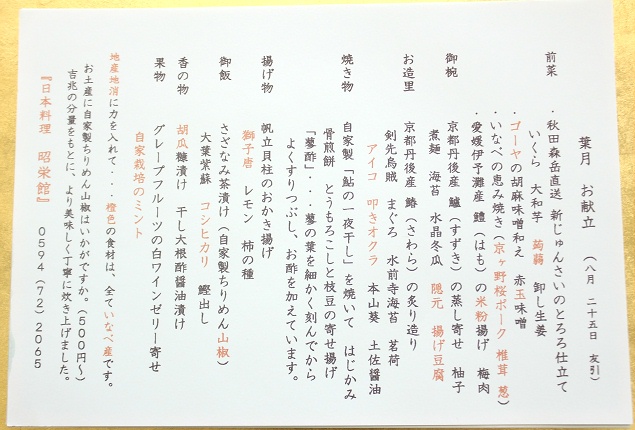 葉月　お献立　（八月　二十五日　友引）
前菜　・秋田森岳直送　新じゅんさいのとろろ仕立て
いくら　大和芋　蒟蒻　卸し生姜
・ゴーヤの胡麻味噌和え　赤玉味噌
・いなべの恵み焼き（京ヶ野桜ポーク　椎茸　葱）
・愛媛伊予灘産　鱧（はも）の米粉揚げ　梅肉
御椀　京都丹後産　鱸（すずき）の蒸し寄せ　柚子
煮麺　海苔　水晶冬瓜　隠元　揚げ豆腐
お造里　京都丹後産　鰆（さわら）の炙り造り
剣先烏賊　まぐろ　水前寺海苔　茗荷
アイコ　叩きオクラ　本山葵　土佐醤油
焼き物　自家製「鮎の一夜干し」を焼いて　はじかみ
骨煎餅　とうもろこしと枝豆の寄せ揚げ
「蓼酢」・・蓼の葉を細かく刻んでから
よくすりつぶし、お酢を加えています。
揚げ物　帆立貝柱のおかき揚げ
獅子唐　レモン　柿の種
御飯　さざなみ茶漬け（自家製ちりめん山椒）
大葉紫蘇　コシヒカリ　鰹出し
香の物　胡瓜糠漬け　干し大根酢醤油漬け
果物　グレープフルーツの白ワインゼリー寄せ
自家栽培のミント
地産地消に力を入れて・・・橙色の食材は、全ていなべ産です。
お土産に自家製ちりめん山椒はいかがですか。（５００円～）
吉兆の分量をもとに、より美味しく丁寧に炊き上げました。
『日本料理　昭栄館』　０５９４（７２）２０６５